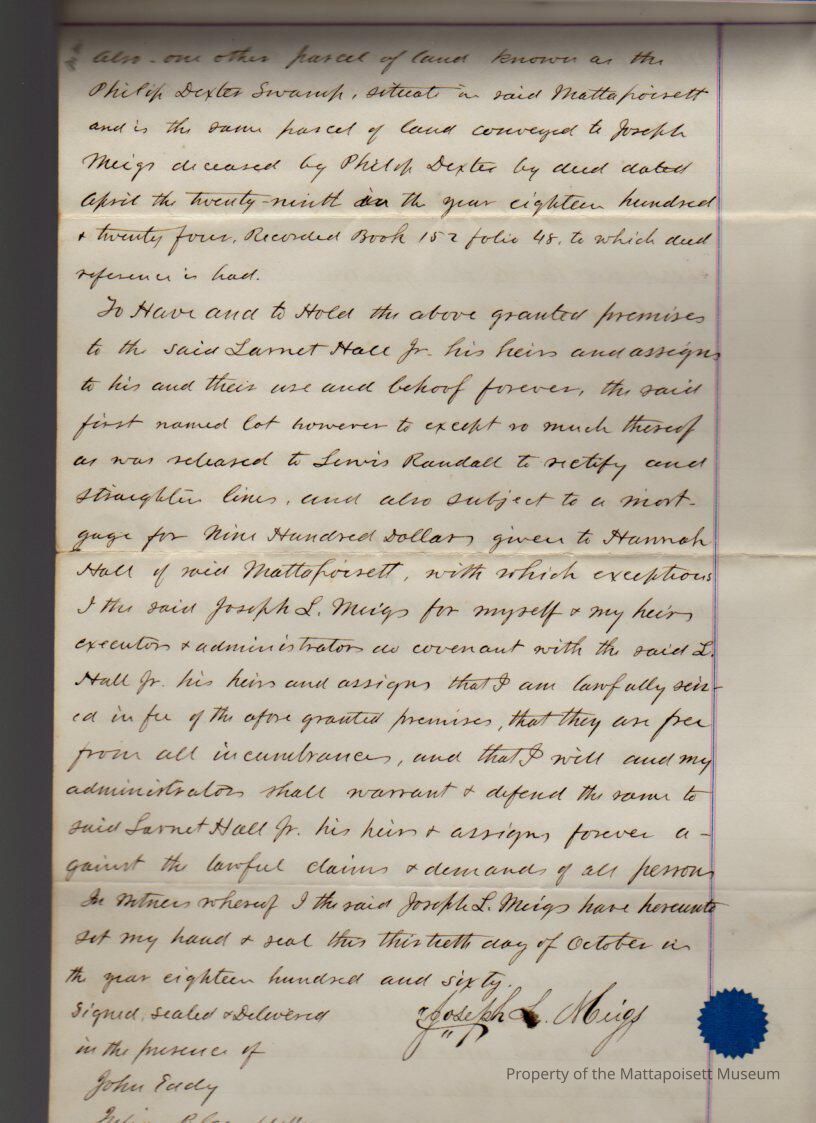 Also - one other parcel of land known as the
Philip Dexter Swamp, situate in said Mattapoisett
and is the same parcel of land conveyed to Joseph
Meigs deceased by Philip Dexter by deed dated
April the twenty-ninth in the year eighteen hundred
& twenty four, Recorded Book 152 folio 48, to which deed
reference is had.
To Have and to Hold the above granted premises
to the said Larnet Hall Jr. his heirs and assigns
to his and their use and behoof forever, the said
first named lot however to except so much thereof
as was released to Lewis Randall to rectify and
straighten lines, and also subject to a mort-
gage for Nine Hundred Dollars given to Hannah
Hall of said Mattapoisett, with which exceptions
I the said Joseph L. Meigs for myself & my heirs
executors & administrators do covenant with the said L.
Hall Jr. his heirs and assigns that I am lawfully seiz-
ed in fee of the afore granted premises, that they are free
from all incumbrances, and that I will and my
administrators shall warrant & defend the same to
said Larnet Hall Jr. his heirs & assigns forever a-
gainst the lawful claims & demands of all persons
In witness whereof I the said Joseph L. Meigs have hereunto
set my hand & seal this thirtieth day of October in
the year eighteen hundred and sixty.
Signed, sealed & Delivered
Joseph L. Meigs
in the presence of
John Eddy
Property of the Mattapoisett Museum